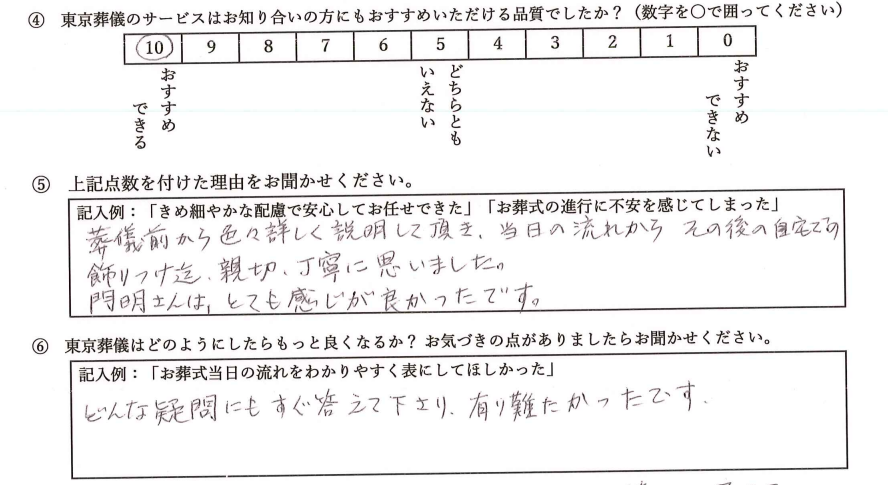 ④ 東京葬儀のサービスはお知り合いの方にもおすすめいただける品質でしたか？（数字を〇で囲ってください）
10 9 8 7 6 5 4 3 2 1 0
おすすめ
できる
どちらとも
いえない
おすすめ
できない
⑤ 上記点数を付けた理由をお聞かせください。
記入例：「きめ細やかな配慮で安心してお任せできた」「お葬式の進行に不安を感じてしまった」
葬儀前から色々詳しく説明して頂き、当日の流れから その後の自宅での
飾りつけ迄、親切、丁寧に思いました。
門明さんは、とても感じが良かったです。
⑥ 東京葬儀はどのようにしたらもっと良くなるか？ お気づきの点がありましたらお聞かせください。
記入例：「お葬式当日の流れをわかりやすく表にしてほしかった」
どんな疑問にもすぐ答えて下さり、有り難たかったです.